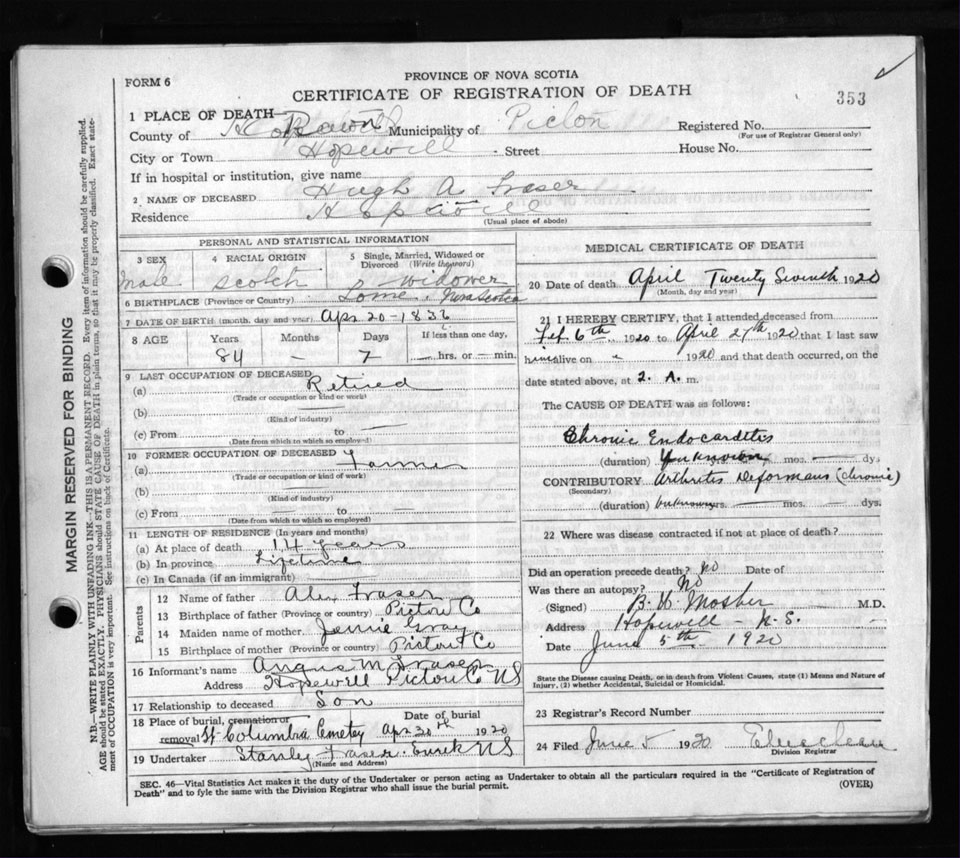 PROVINCE OF NOVA SCOTIA
FORM 6
CERTIFICATE OF REGISTRATION OF DEATH
353
1 PLACE OF DEATH
County of Municipality of Pictou Registered No.
(For use of Registrar General only)
City or Town Hopewell Street House No.
If in hospital or institution, give name
2 NAME OF DECEASED Hugh A Fraser
Residence Hopewell
(Usual place of abode)
PERSONAL AND STATISTICAL INFORMATION
3 SEX 4 RACIAL ORIGIN 5 Single, Married, Widowed or Divorced (Write the word)
male scotch widower
6 BIRTHPLACE (Province or Country) Lorne, Nova Scotia
7 DATE OF BIRTH (month, day and year) Apr 20-1836
8 AGE Years Months Days If less than one day,
84 — 7 — hrs. or — min.
9 LAST OCCUPATION OF DECEASED
(a) Retired
(Trade or occupation or kind of work)
(b) —
(Kind of industry)
(c) From — to —
(Date from which to which so employed)
10 FORMER OCCUPATION OF DECEASED
(a) Farmer
(Trade or occupation or kind of work)
(b) —
(Kind of industry)
(c) From — to —
(Date from which to which so employed)
11 LENGTH OF RESIDENCE (In years and months)
(a) At place of death 14 years
(b) In province Lifetime
(c) In Canada (if an immigrant) —
Parents
12 Name of father Alex Fraser
13 Birthplace of father (Province or country) Pictou Co
14 Maiden name of mother Jennie Gray
15 Birthplace of mother (Province or country) Pictou Co
16 Informant's name Angus M Fraser
Address Hopewell Pictou Co NS
17 Relationship to deceased Son
18 Place of burial, cremation or removal St Columbia Cemetery Date of burial Apr 30th 1920
19 Undertaker Stanley Fraser. Eurek NS
(Name and Address)
MEDICAL CERTIFICATE OF DEATH
20 Date of death April Twenty Seventh 1920
(Month, day and year)
21 I HEREBY CERTIFY, that I attended deceased from
Feb. 6th 1920 to April 27th 1920 that I last saw
him alive on 1920 and that death occurred, on the
date stated above, at 2. A. m.
The CAUSE OF DEATH was as follows:
Chronic Endocarditis
(duration) Unknown yrs. — mos. — dys
CONTRIBUTORY Arthritis Deformans (chronic)
(Secondary)
(duration) unknown yrs. — mos. — dys.
22 Where was disease contracted if not at place of death?
Did an operation precede death? No Date of
Was there an autopsy? No
(Signed) B. H. Mosher M.D.
Address Hopewell - N.S.
Date June 5th 1920
State the Disease causing Death, or in death from Violent Causes, state (1) Means and Nature of Injury, (2) whether Accidental, Suicidal or Homicidal.
23 Registrar's Record Number
24 Filed June 5 1920
Division Registrar
SEC. 46—Vital Statistics Act makes it the duty of the Undertaker or person acting as Undertaker to obtain all the particulars required in the "Certificate of Registration of
Death" and to fyle the same with the Division Registrar who shall issue the burial permit.
(OVER)
MARGIN RESERVED FOR BINDING
N.B.—WRITE PLAINLY WITH UNFADING INK—THIS IS A PERMANENT RECORD. Every item of information should be carefully supplied.
AGE should be stated EXACTLY. PHYSICIANS should STATE CAUSE OF DEATH in plain terms, so that it may be properly classified. Exact statement
of OCCUPATION is very important. See instructions on back of Certificate.